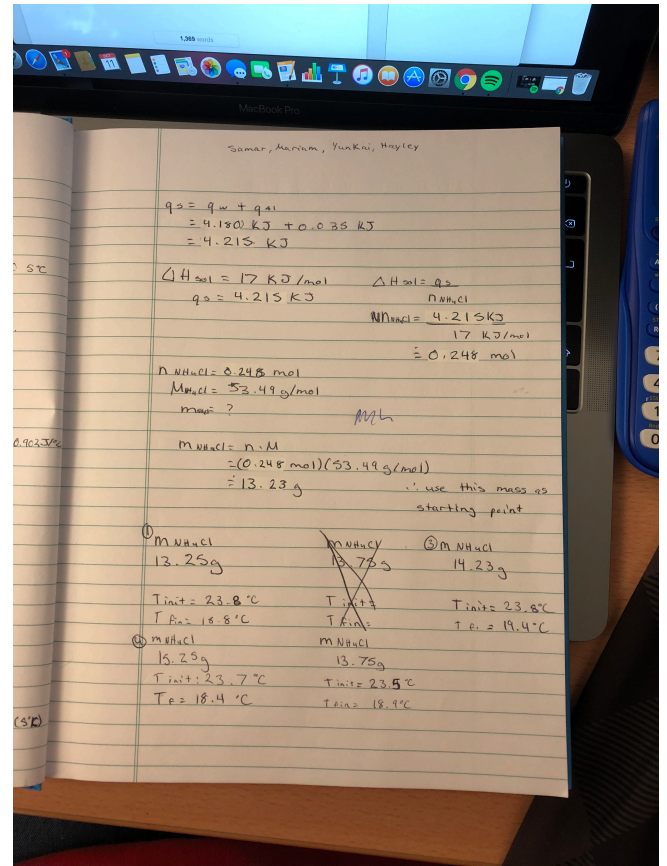 1,369 words
MacBook Pro
Samar, Mariam, Yunkai, Hayley
qs = qw + qal
= 4.180 KJ + 0.035 KJ
= 4.215 KJ
5℃
△H sol = 17 KJ/mol
qs = 4.215 KJ
△H sol = qs
n NH4Cl
n NH4Cl = 4.215KJ
17 KJ/mol
= 0.248 mol
n NH4Cl = 0.248 mol
M NH4Cl = 53.49 g/mol
mass = ?
0.902 J/℃
m NH4Cl = n · M
= (0.248 mol)(53.49 g/mol)
= 13.23 g
∴ use this mass as
starting point
① m NH4Cl
13.25g
T init = 23.8 °C
T fin = 18.8 °C
m NH4Cl
13.75g
T init =
T fin =
③ m NH4Cl
14.23g
T init = 23.8°C
T f. = 19.4°C
④ m NH4Cl
15.25g
T init: 23.7 °C
T f = 18.4 °C
m NH4Cl
13.75g
T init = 23.5 °C
T fin = 18.9°C
(5℃)